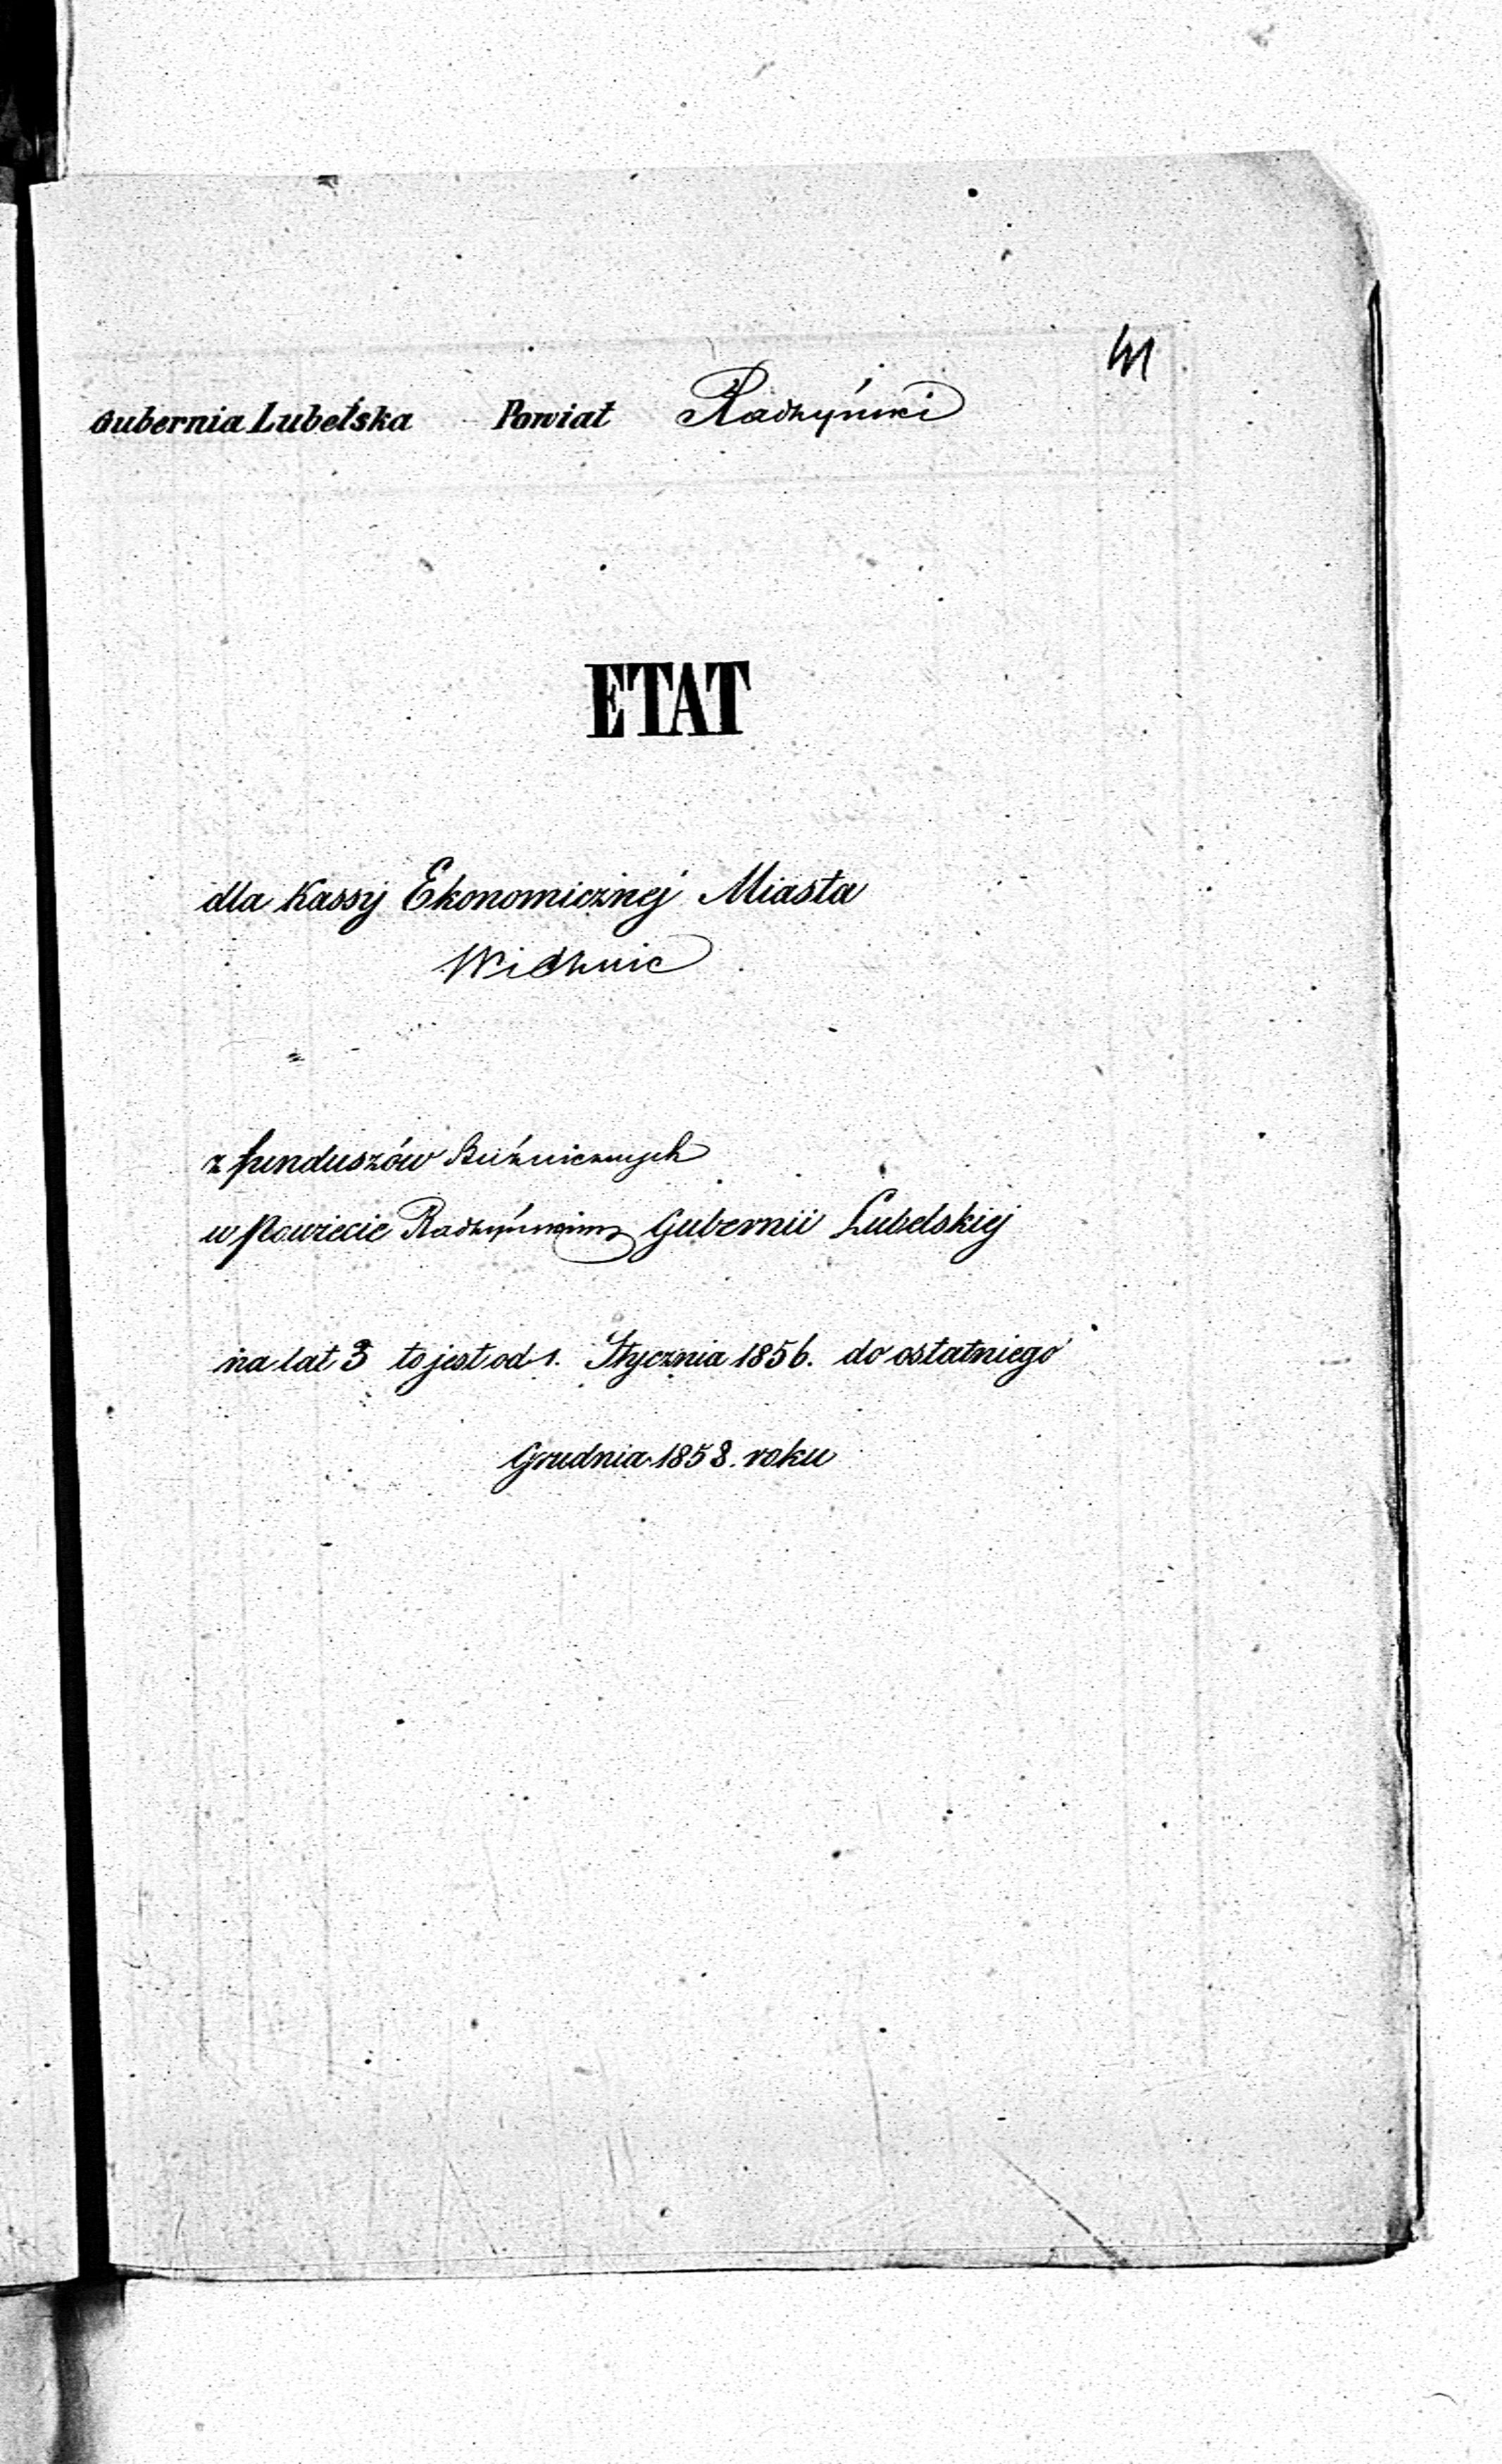 41
Gubernia Lubelska Powiat Radzyński
ETAT
dla Kassy Ekonomicznej Miasta
Wichnic
z funduszów Bużnicznych
w Powiecie Radzyńskim Gubernii Lubelskiej
na lat 3 to jest od 1. Stycznia 1856. do ostatniego
Grudnia 1858. roku